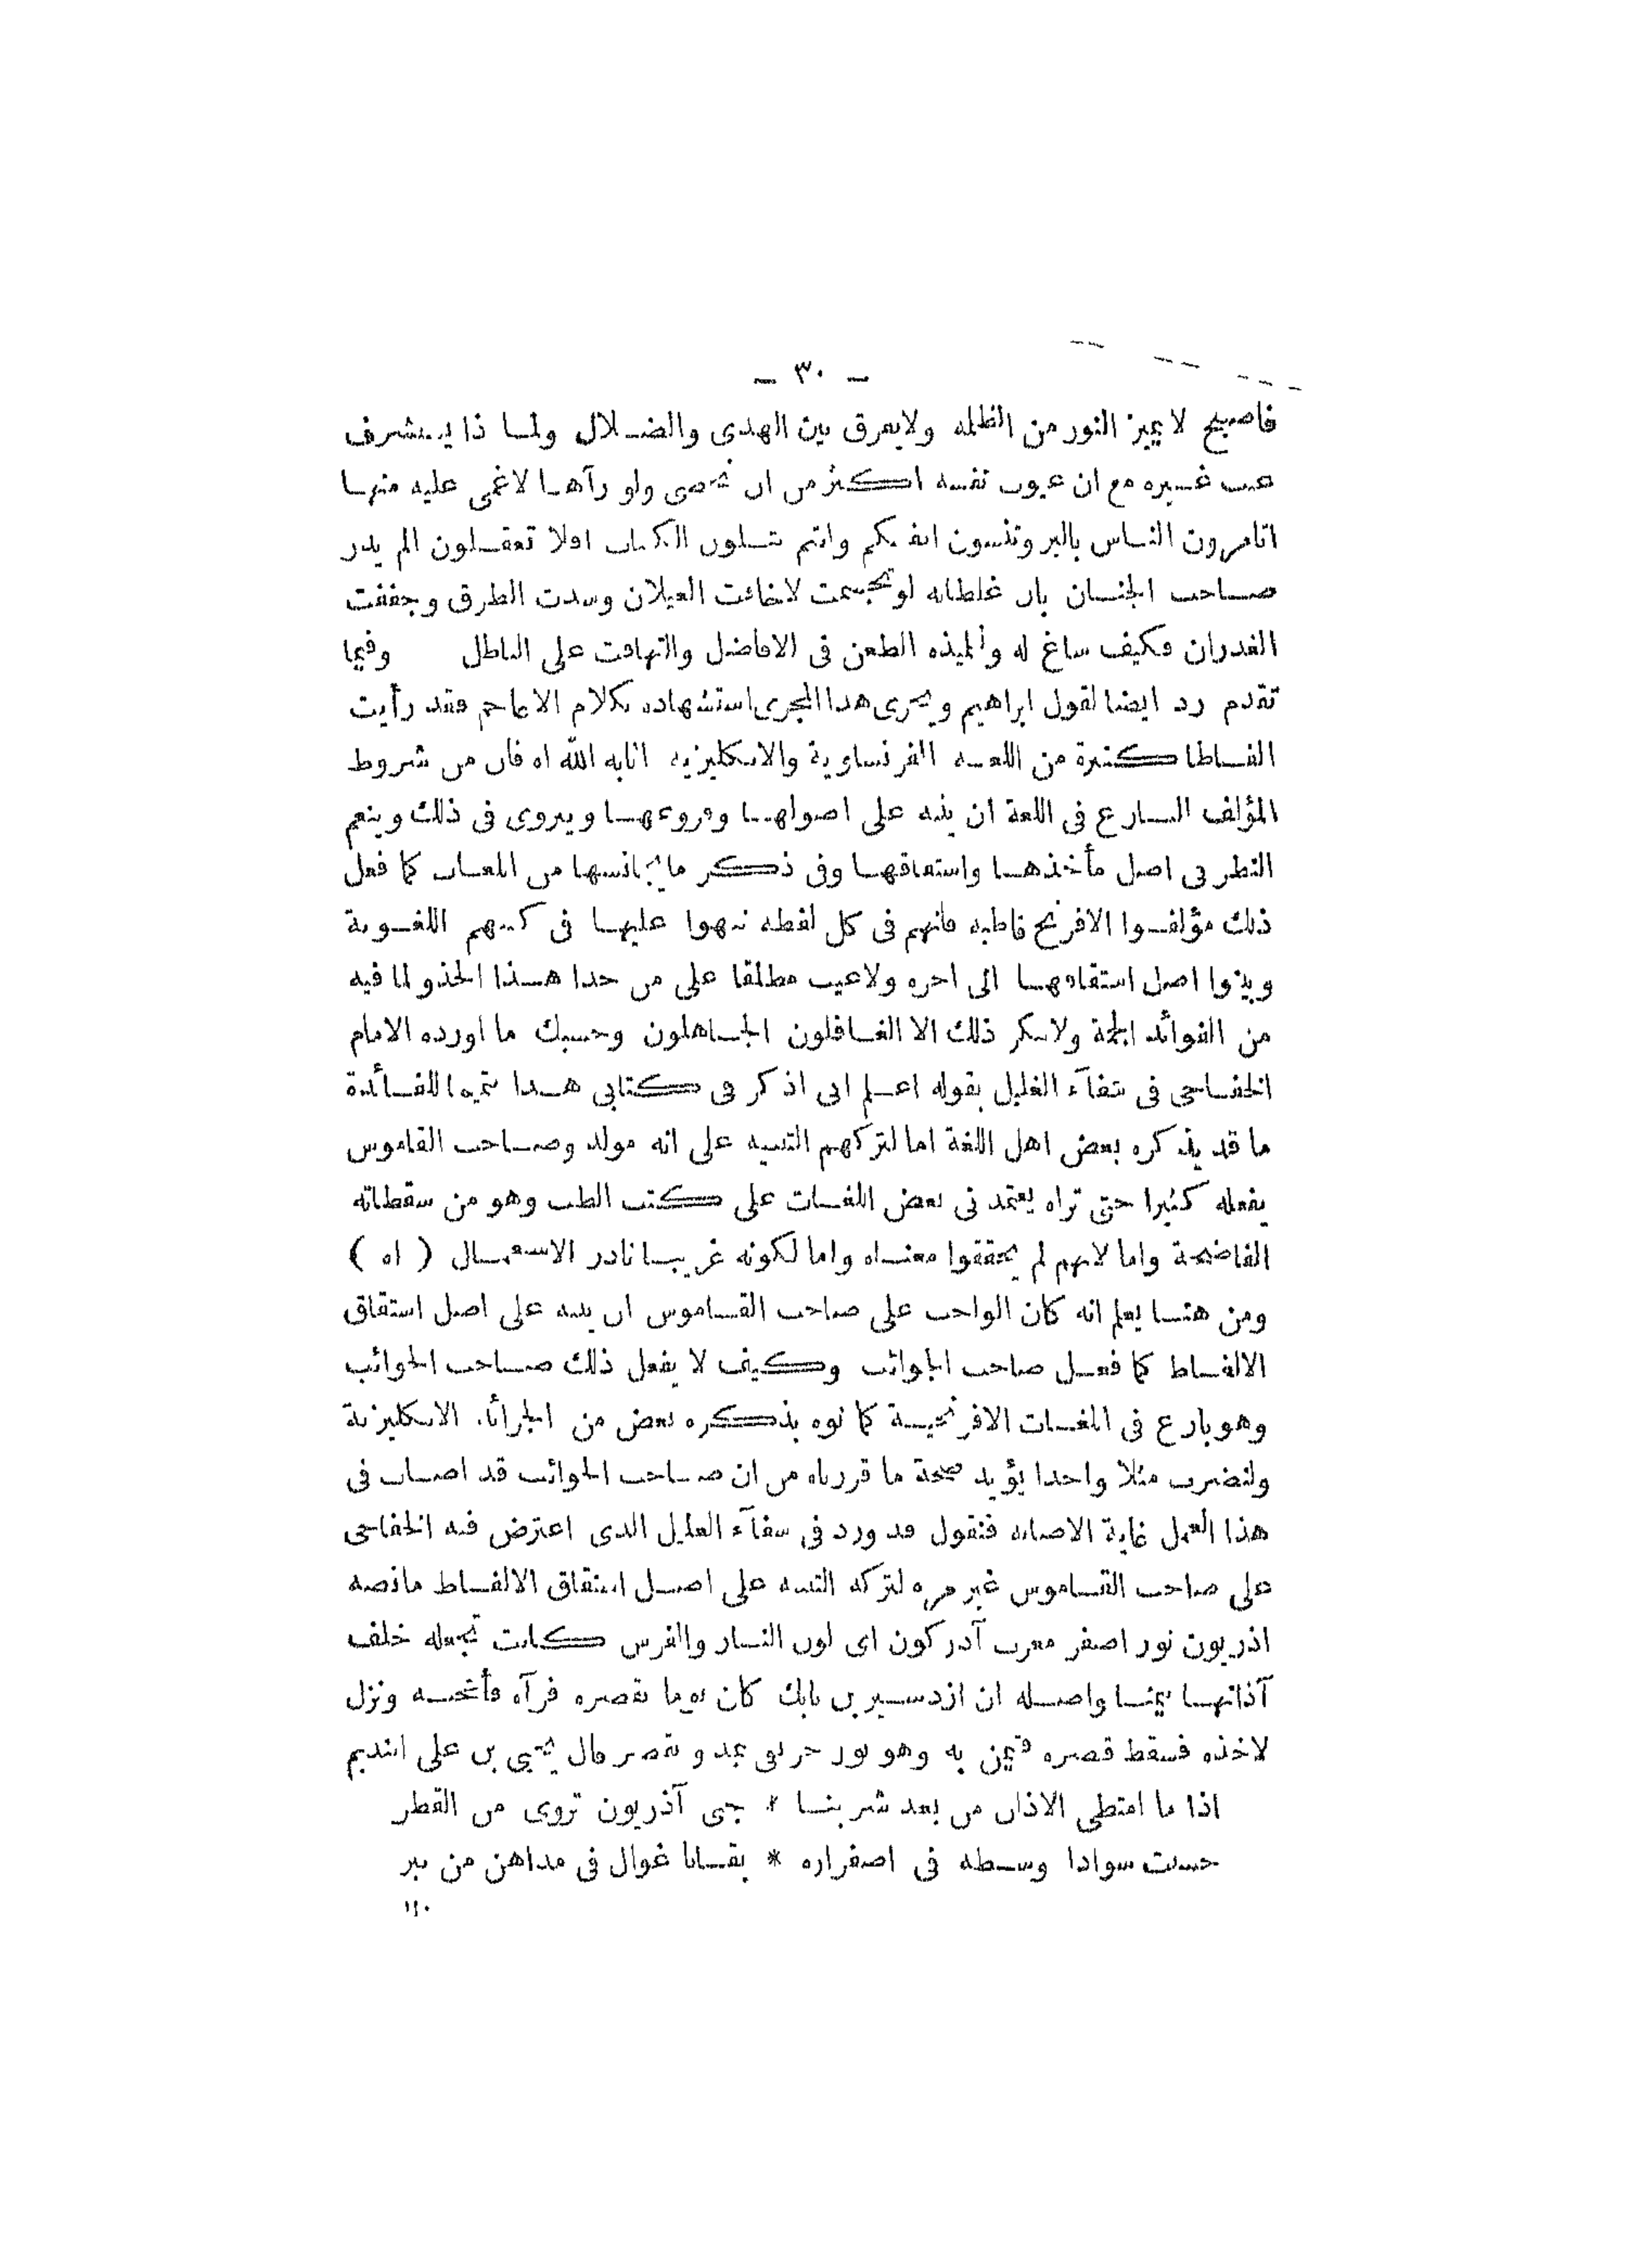 - ٣٠ -
فاصبح لا يميز النور من الظلمه ولا يفرق بين الهدى والضلال ولما ذا يستشرف
عيب غيره مع ان عيوب نفسه اكثر من ان تحصى ولو رآها لاغمى عليه منها
اتامرون الناس بالبر وتنسون انفسكم وانتم تتلون الكتاب افلا تعقلون الم يدر
صاحب الجنان بان غلطاته لو تجسمت لاخافت الغيلان وسدت الطرق وجففت
الغدران فكيف ساغ له ولتلميذه الطعن فى الافاضل والتهافت على الباطل وفيما
تقدم رد ايضا لقول ابراهيم ويجرى هذا المجرى استشهاده بكلام الاعاجم فقد رأيت
الفاظا كثيرة من اللغة الفرنساوية والانكليزيه اثابه الله اه فان من شروط
المؤلف البارع فى اللغة ان ينبه على اصولها وفروعها ويروى فى ذلك وينعم
النظر فى اصل مأخذها واشتقاقها وفى ذكر ما يجانسها من اللغات كما فعل
ذلك مؤلفوا الافرنج قاطبه فانهم فى كل لفظه نبهوا عليها فى كتبهم اللغوية
وبينوا اصل اشتقاقها الى اخره ولا عيب مطلقا على من حذا هذا الحذو لما فيه
من الفوائد الجمة ولا ينكر ذلك الا الغافلون الجاهلون وحسبك ما اورده الامام
الخفاجى فى شفآء الغليل بقوله اعلم انى اذكر فى كتابى هذا تتميما للفائدة
ما قد يذكره بعض اهل اللغة اما لتركهم التنبيه على انه مولد وصاحب القاموس
يفعله كثيرا حتى تراه يعتمد فى بعض اللغات على كتب الطب وهو من سقطاته
الفاضحة واما لانهم لم يحققوا معناه واما لكونه غريبا نادر الاستعمال ( اه )
ومن هنا يعلم انه كان الواجب على صاحب القاموس ان ينبه على اصل اشتقاق
الالفاظ كما فعل صاحب الجوائب وكيف لا يفعل ذلك صاحب الجوائب
وهو بارع فى اللغات الافرنجية كما نوه بذكره بعض من الجرائد الانكليزية
ولنضرب مثلا واحدا يؤيد صحة ما قررناه من ان صاحب الجوائب قد اصاب فى
هذا العمل غاية الاصابه فنقول قد ورد فى شفآء الغليل الذى اعترض فيه الخفاجى
على صاحب القاموس غير مره لتركه التنبيه على اصل اشتقاق الالفاظ مانصه
اذريون نور اصفر معرب آذركون اى لون النار والفرس كانت تجعله خلف
آذانها تيمنا واصله ان ازدشير بن بابك كان يوما بقصره فرآه فأعجبه ونزل
لاخذه فسقط قصره فتيمن به وهو نور خريفى يمد ويقصر قال يحيى بن على النديم
اذا ما امتطى الاذان من بعد شربنا * جنى آذريون تروى من القطر
حسبت سوادا وسطه فى اصفراره * بقايا غوال فى مداهن من تبر